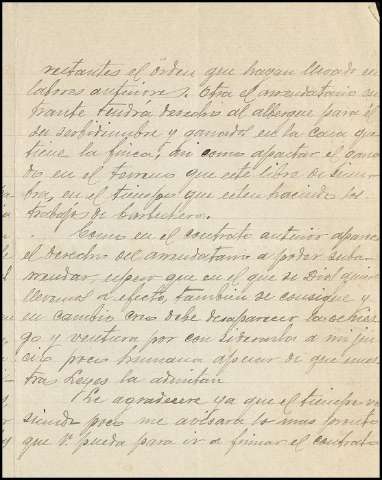 restantes el órden que hayan llevado en
labores anteriores. Otra el arrendatario en
trante tendrá derecho al albergue para él
su servidumbre y ganados en la casa que
tiene la finca, asi como apastar el gana
do en el terreno que esté libre de siem
bra, en el tiempo que esten haciendo los
trabajos de barbechera.
Como en el contrato anterior aparece
el derecho del arrendatario a poder suba
rrendar, espero que en el que si Dios quie
llevemos a efecto, tambien se consigne y
en cambio creo debe desaparecer lo de ries
go y ventura por considerarlo a mi jui
cio poco humano apesar de que nues
tras Leyes la admitan
Le agradecere ya que el tiempo va
siendo poco me avisara lo mas pronto
que V. pueda para ir a firmar el contrato